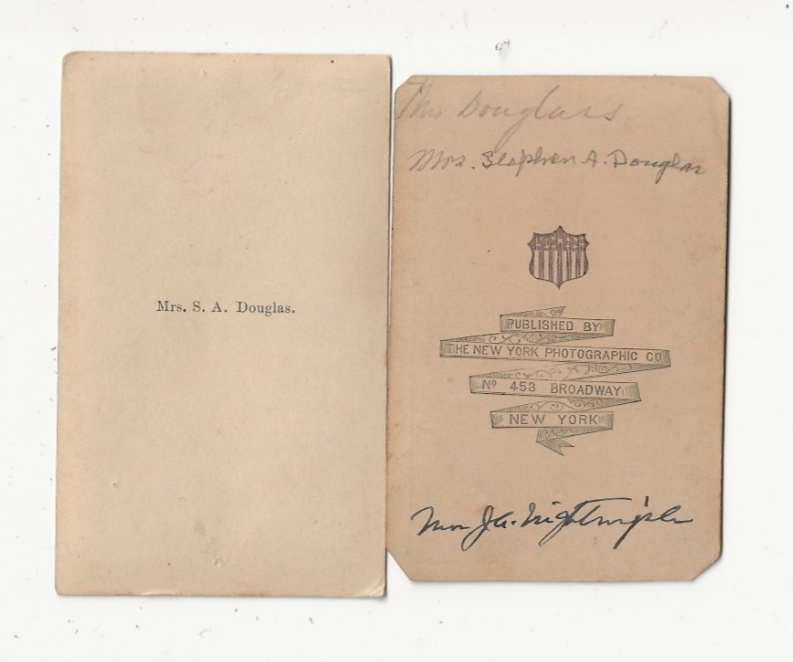 Mrs. S. A. Douglas.
Mrs Douglass
Mrs. Stephen A. Douglas
PUBLISHED BY
THE NEW YORK PHOTOGRAPHIC CO
No 453 BROADWAY
NEW YORK